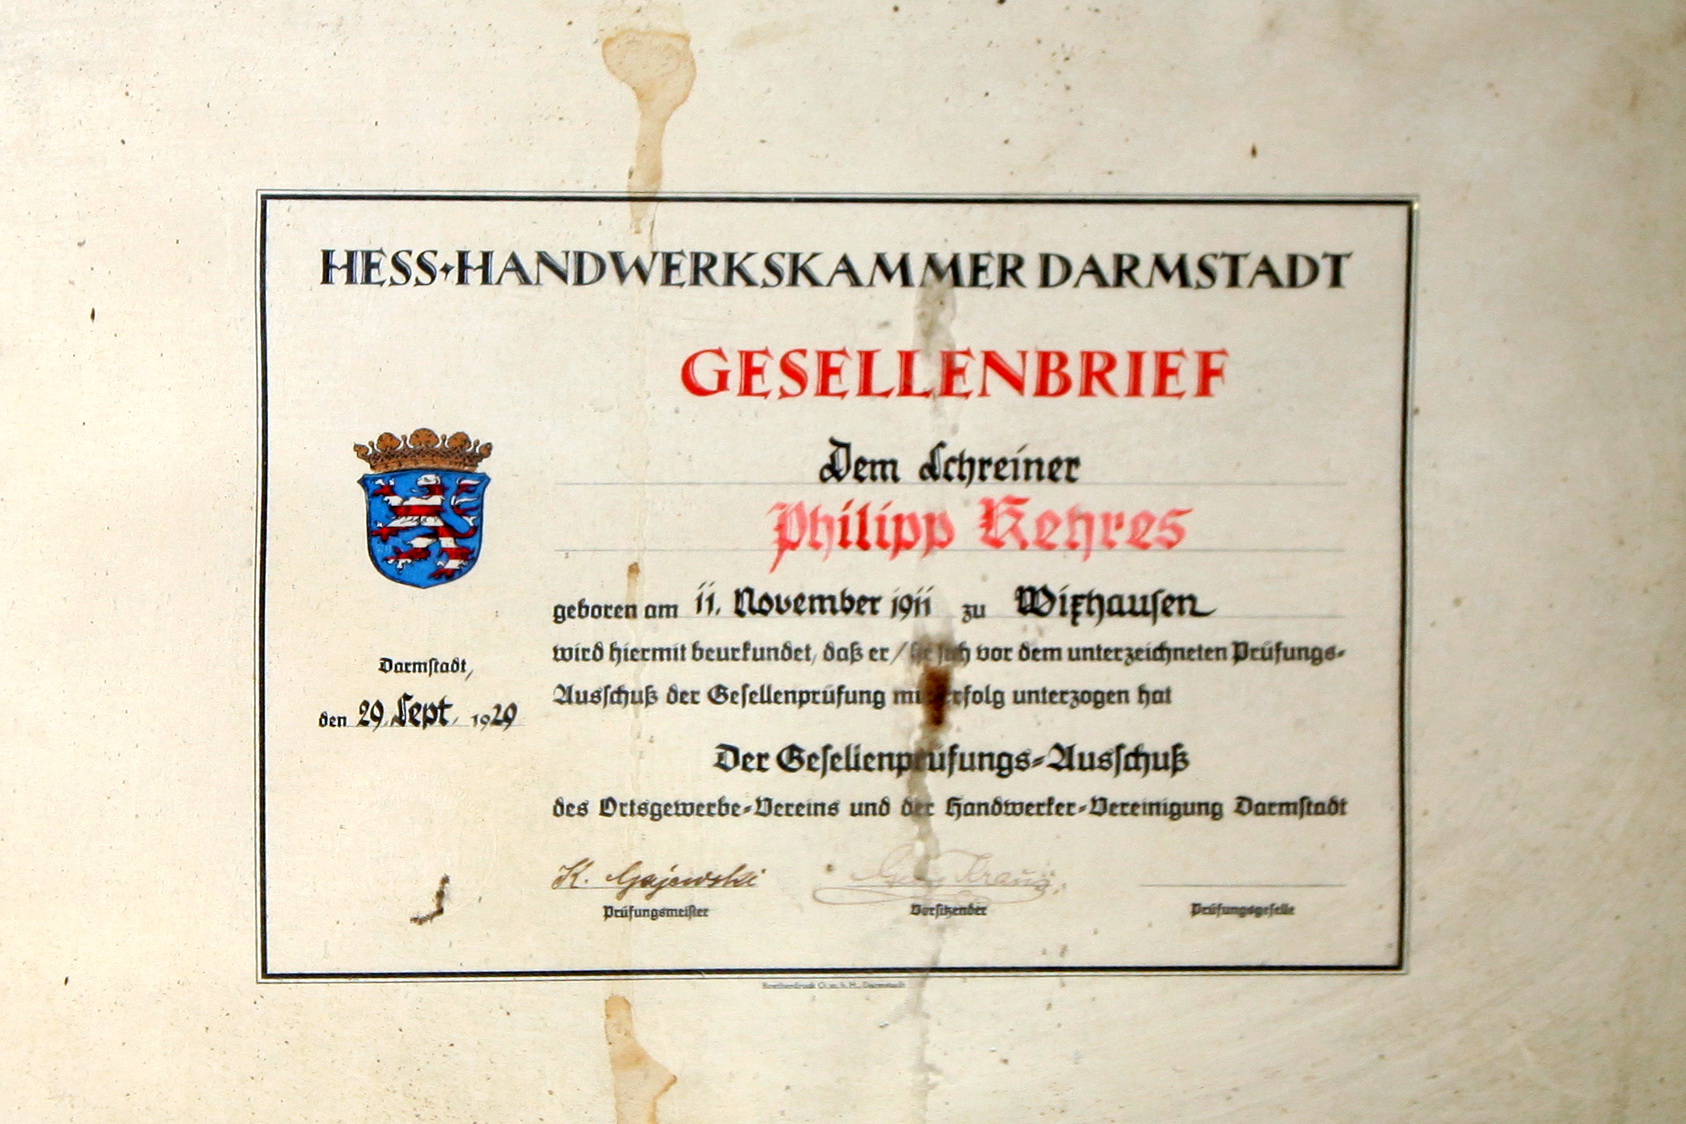 HESS·HANDWERKSKAMMER DARMSTADT
GESELLENBRIEF
Dem Schreiner
Philipp Kehres
geboren am 11. November 1911 zu Wixhausen
wird hiermit beurkundet, daß er / sie sich vor dem unterzeichneten Prüfungs-
Ausschuß der Gesellenprüfung mit Erfolg unterzogen hat
Darmstadt,
den 29. Sept. 1929
Der Gesellenprüfungs-Ausschuß
des Ortsgewerbe-Vereins und der Handwerker-Vereinigung Darmstadt
K. Gajewski
Georg Kraus.
Prüfungsmeister
Vorsitzender
Prüfungsgeselle
G.m.b.H., Darmstadt